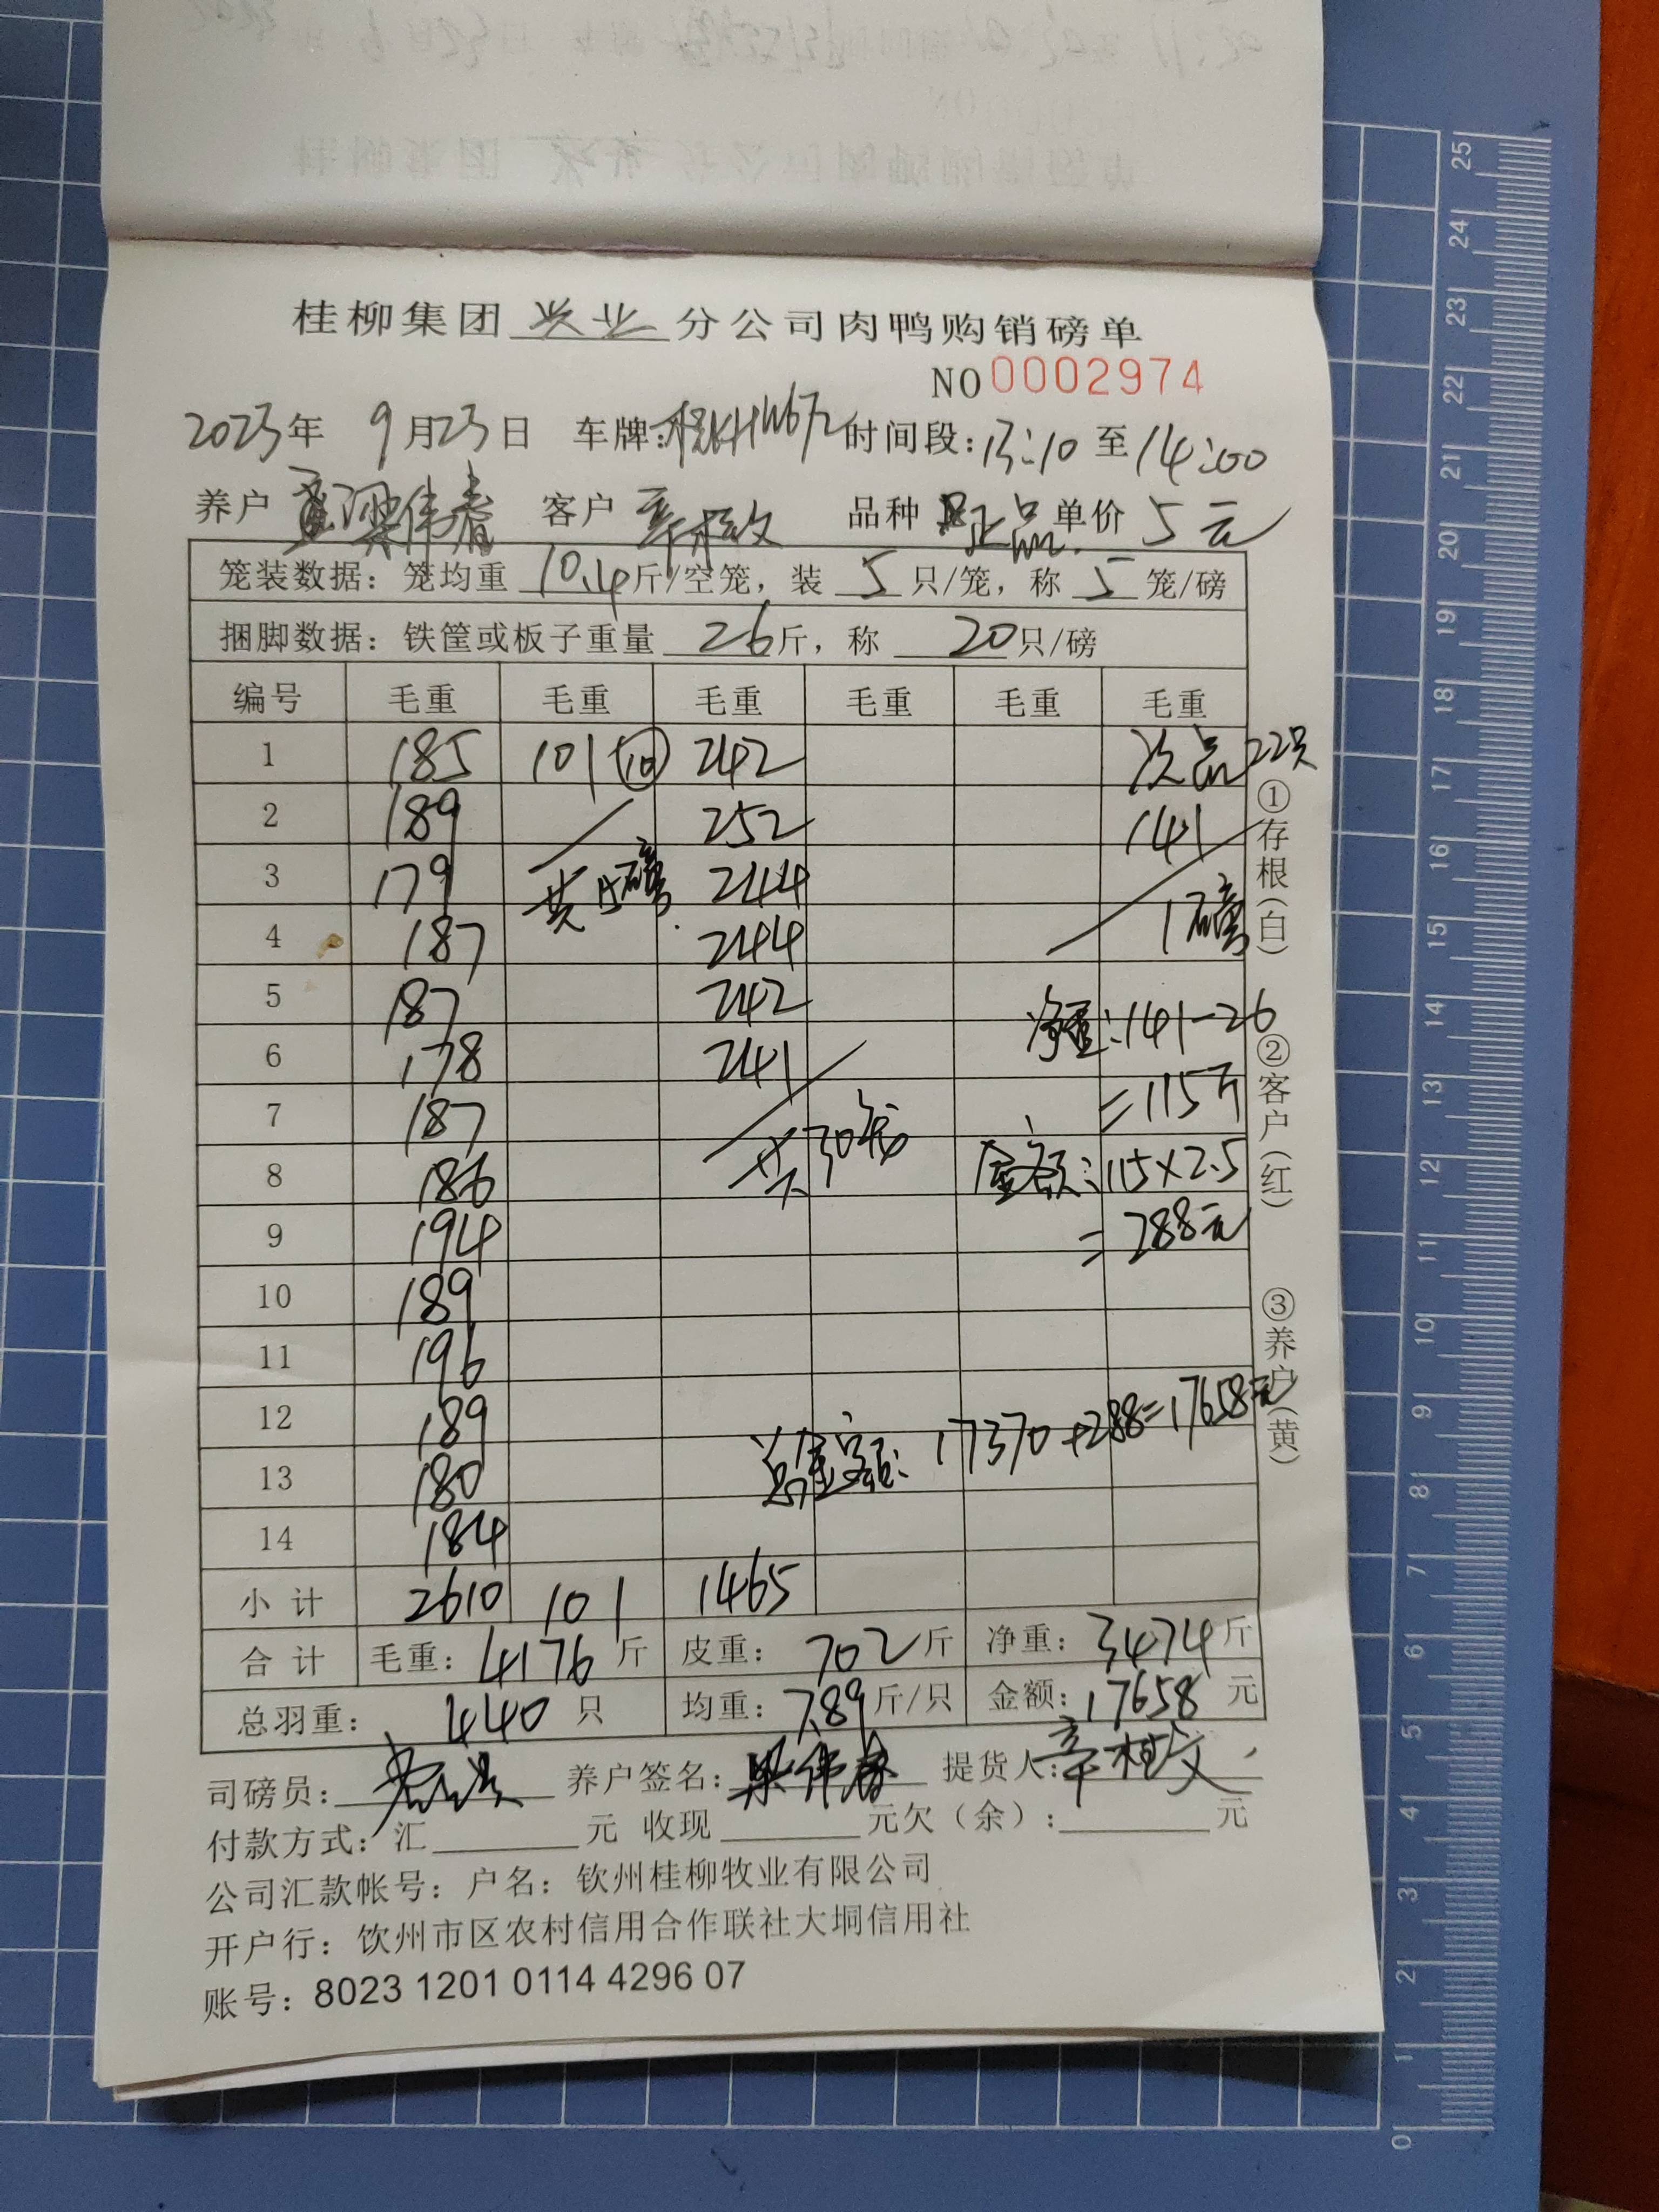 桂柳集团 兴业 分公司肉鸭购销磅单
NO 0002974
2023年 9月23日 车牌: 时间段: 13:10 至 14:00
养户 梁伟春 客户 辛桂文 品种 正品 单价 5元
笼装数据: 笼均重 10.4 斤/空笼, 装 5 只/笼, 称 5 笼/磅
捆脚数据: 铁筐或板子重量 26 斤, 称 20 只/磅
编号 毛重 毛重 毛重 毛重 毛重 毛重
1 185 101 (10) 242 次品22只
2 189 252 141
3 179 共15磅 244
4 187 244 1磅
5 187 242 净重: 141-26
6 178 241
7 187 =115斤
8 186 共30笼 金额: 115×2.5
9 194 =288元
10 189
11 196
12 189
13 180 总金额: 17370+288=17658元
14 184
小计 2610 101 1465
合计 毛重: 4176 斤 皮重: 702 斤 净重: 3474 斤
总羽重: 440 只 均重: 7.89 斤/只 金额: 17658 元
司磅员: 养户签名: 梁伟春 提货人: 辛桂文
付款方式: 汇 元 收现 元欠(余): 元
公司汇款帐号: 户名: 钦州桂柳牧业有限公司
开户行: 饮州市区农村信用合作联社大垌信用社
账号: 8023 1201 0114 4296 07
①存根(白)
②客户(红)
③养户(黄)
0
1
2
3
4
5
6
7
8
9
10
11
12
13
14
15
16
17
18
19
20
21
22
23
24
25